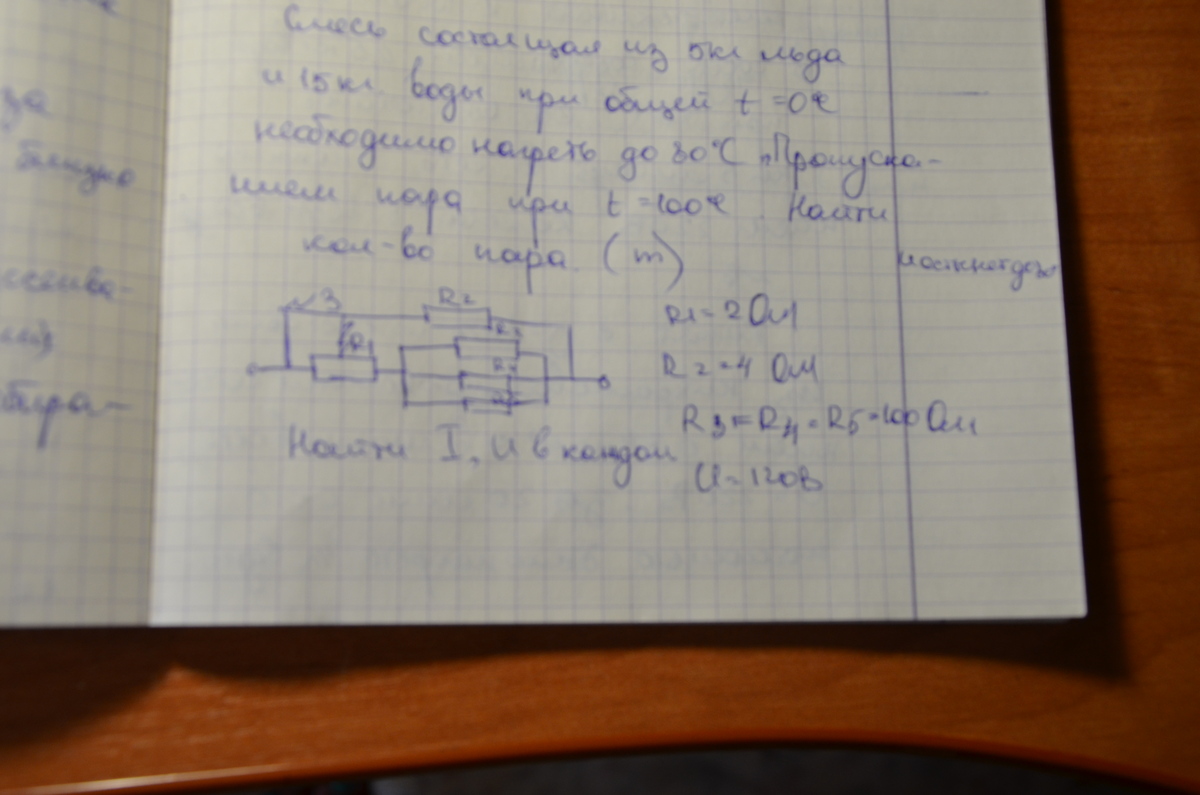 за
Смесь состоящая из 5кг льда
и 15кг воды при общей t=0°C
необходимо нагреть до 80°C Пропуска-
нием пара при t=100°C. Найти
кол-во пара (m)
R2
R1
R3
R1=2 Ом
R2=4 Ом
R3=R4=R5=100 Ом
U=120В
Найти I, U в каждом